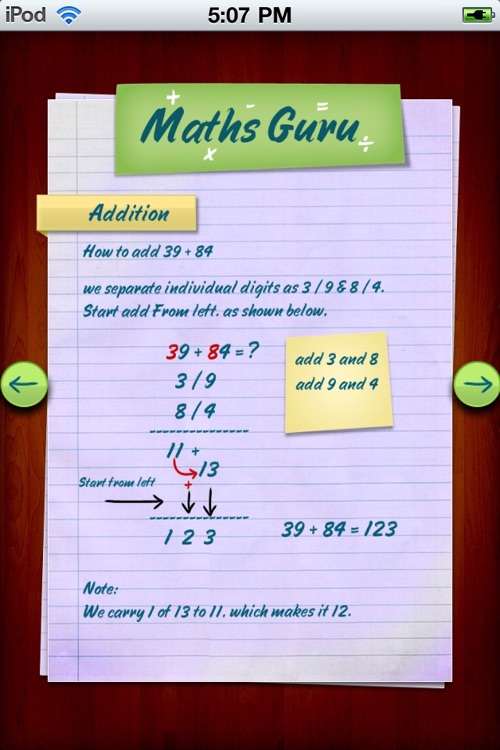 iPod
5:07 PM
+ - =
Maths Guru
x ÷
Addition
How to add 39 + 84
we separate individual digits as 3 / 9 & 8 / 4.
Start add From left. as shown below.
39 + 84 = ?
3 / 9
8 / 4
add 3 and 8
add 9 and 4
11 +
13
Start from left
+
1 2 3
39 + 84 = 123
Note:
We carry 1 of 13 to 11, which makes it 12.